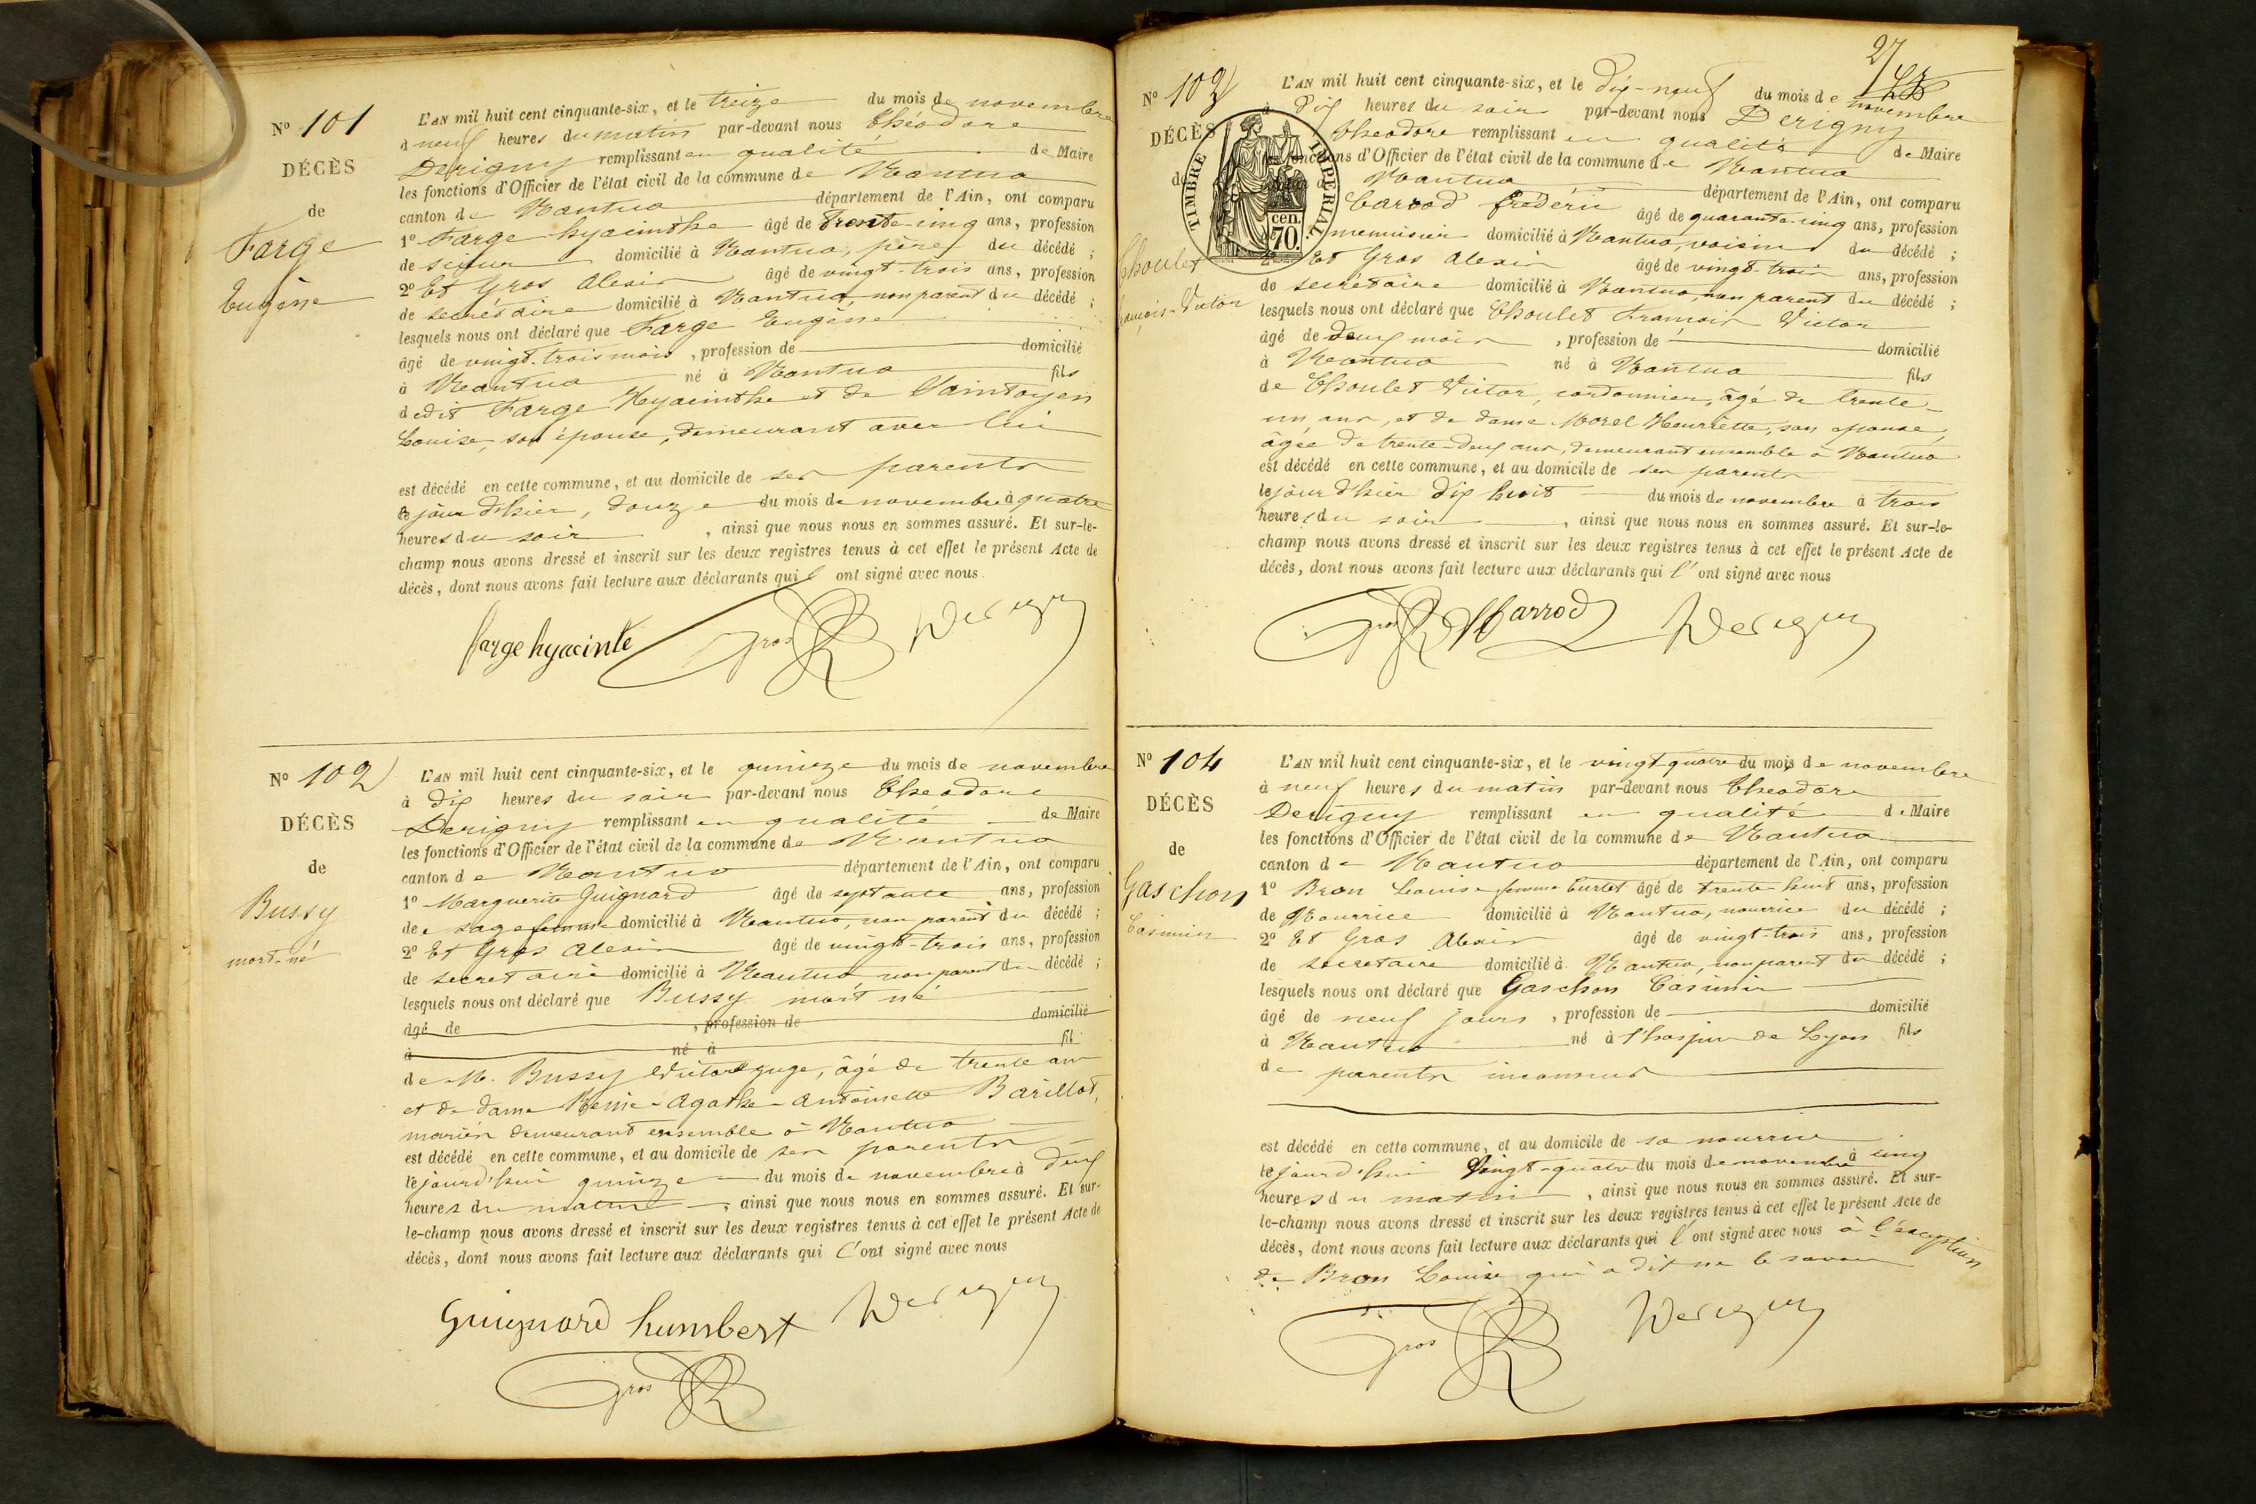 N° 101
DÉCÈS
de
Farge
Eugène
L'AN mil huit cent cinquante-six, et le treize du mois de novembre
à neuf heures du matin par-devant nous Théodore
Derigny remplissant en qualité de Maire
les fonctions d'Officier de l'état civil de la commune de Nantua
canton de Nantua département de l'Ain, ont comparu
1° Farge hyacinthe âgé de Trente-cinq ans, profession
de scieur domicilié à Nantua, père du décédé ;
2° Et Gros Alexis âgé de vingt-trois ans, profession
de secrétaire domicilié à Nantua, non parent du décédé ;
lesquels nous ont déclaré que Farge Eugène
âgé de vingt-trois mois, profession de domicilié
à Nantua né à Nantua fils
dudit Farge Hyacinthe et de Saintoyen
Louise, son épouse, demeurant avec lui
est décédé en cette commune, et au domicile de ses parents
le jour d'hier, douze du mois de novembre à quatre
heures du soir, ainsi que nous nous en sommes assuré. Et sur-le-
champ nous avons dressé et inscrit sur les deux registres tenus à cet effet le présent Acte de
décès, dont nous avons fait lecture aux déclarants qui l'ont signé avec nous
farge hyacinte Gros Derigny
N° 102
DÉCÈS
de
Bussy
mort-né
L'AN mil huit cent cinquante-six, et le quinze du mois de novembre
à dix heures du soir par-devant nous Théodore
Derigny remplissant en qualité de Maire
les fonctions d'Officier de l'état civil de la commune de Nantua
canton de Nantua département de l'Ain, ont comparu
1° Marguerite Guignard âgé de septante ans, profession
de sage femme domicilié à Nantua, non parent du décédé ;
2° Et Gros Alexis âgé de vingt-trois ans, profession
de secretaire domicilié à Nantua non parent du décédé ;
lesquels nous ont déclaré que Bussy mort né
âgé de , profession de domicilié
à né à fil
de M. Bussy Victor juge, âgé de trente ans
et de dame Reine-Agathe-Antoinette Barillot,
mariés demeurant ensemble à Nantua
est décédé en cette commune, et au domicile de ses parents
le jourd'hui quinze du mois de novembre à deux
heures du matin, ainsi que nous nous en sommes assuré. Et sur-
le-champ nous avons dressé et inscrit sur les deux registres tenus à cet effet le présent Acte de
décès, dont nous avons fait lecture aux déclarants qui l'ont signé avec nous
Guignard humbert Derigny
Gros
27
N° 103
DÉCÈS
de
Choulet
François-Victor
TIMBRE IMPÉRIAL
cen.
70.
L'AN mil huit cent cinquante-six, et le dix-neuf du mois de novembre
à dix heures du soir par-devant nous Derigny
Théodore remplissant en qualité de Maire
les fonctions d'Officier de l'état civil de la commune de Nantua
canton de Nantua département de l'Ain, ont comparu
Carrod frédéric âgé de quarante-cinq ans, profession
menuisier domicilié à Nantua, voisin du décédé ;
2° Et Gros Alexis âgé de vingt-trois ans, profession
de secrétaire domicilié à Nantua, non parent du décédé ;
lesquels nous ont déclaré que Choulet François Victor
âgé de deux mois, profession de domicilié
à Nantua né à Nantua fils
de Choulet Victor, cordonnier, âgé de trente-
un ans, et de dame Morel Henriette, son épouse,
âgée de trente-deux ans, demeurant ensemble à Nantua
est décédé en cette commune, et au domicile de ses parents
le jour d'hier dix huit du mois de novembre à trois
heures du soir, ainsi que nous nous en sommes assuré. Et sur-le-
champ nous avons dressé et inscrit sur les deux registres tenus à cet effet le présent Acte de
décès, dont nous avons fait lecture aux déclarants qui l'ont signé avec nous
Gros Derigny
N° 104
DÉCÈS
de
Gaschon
Casimir
L'AN mil huit cent cinquante-six, et le vingt quatre du mois de novembre
à neuf heures du matin par-devant nous Théodore
Derigny remplissant en qualité de Maire
les fonctions d'Officier de l'état civil de la commune de Nantua
canton de Nantua département de l'Ain, ont comparu
1° Bron Louise femme Curtet âgé de trente huit ans, profession
de Nourrice domicilié à Nantua, nourrice du décédé ;
2° Et Gros Alexis âgé de vingt-trois ans, profession
de secretaire domicilié à Nantua, non parent du décédé ;
lesquels nous ont déclaré que Gaschon Casimir
âgé de neuf jours, profession de domicilié
à Nantua né à l'hospice de Lyon fils
de parents inconnus
est décédé en cette commune, et au domicile de sa nourrice
le jourd'hui Vingt-quatre du mois de novembre à cinq
heures du matin, ainsi que nous nous en sommes assuré. Et sur-
le-champ nous avons dressé et inscrit sur les deux registres tenus à cet effet le présent Acte de
décès, dont nous avons fait lecture aux déclarants qui l'ont signé avec nous à l'exception
de Bron Louise qui a dit ne le savoir
Gros Derigny